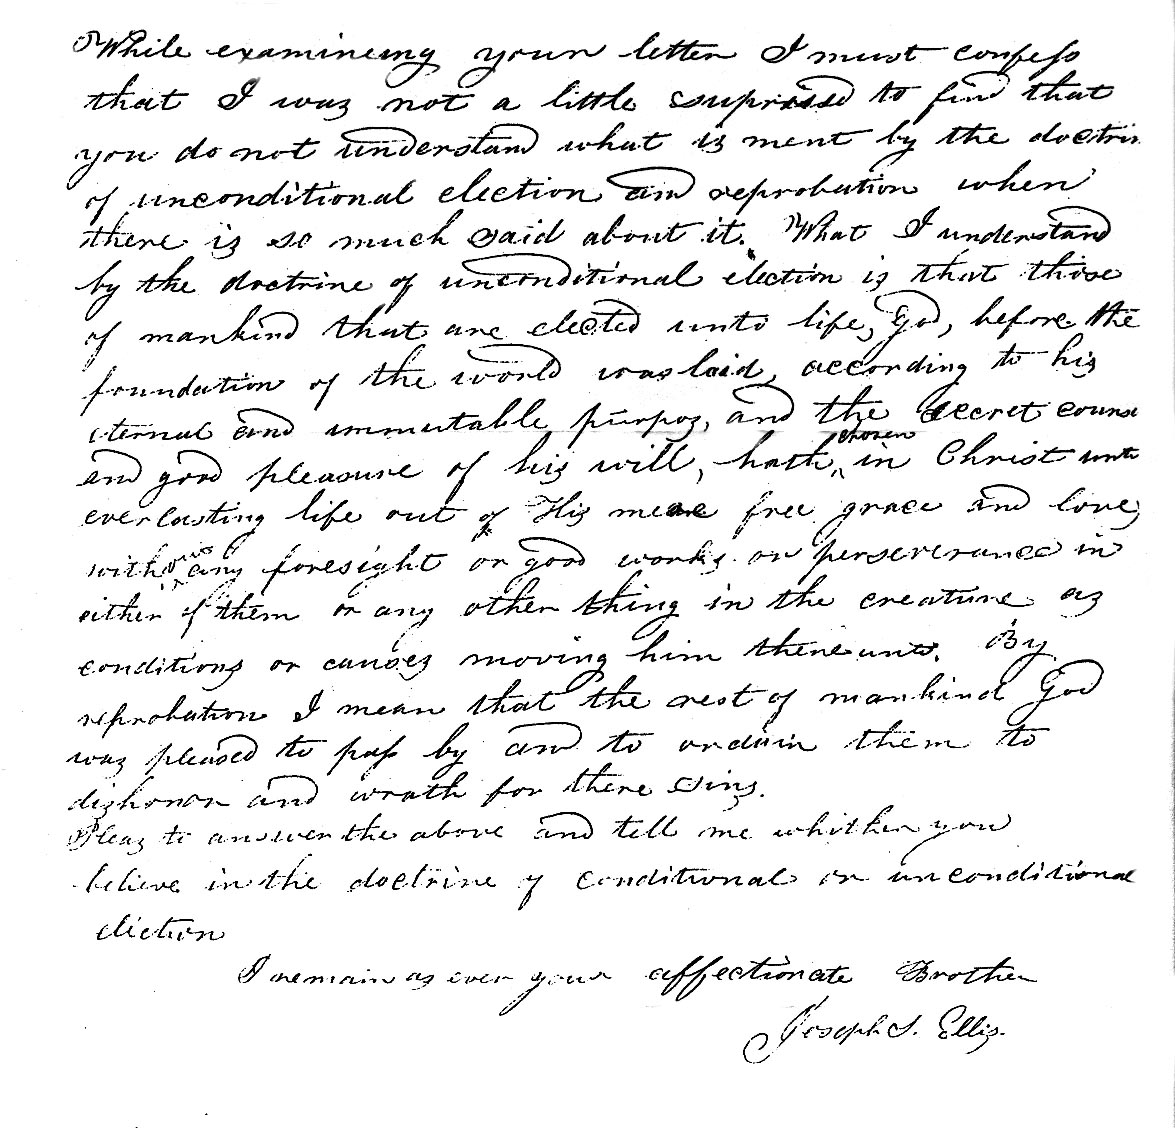 While examineing your letter I must confess
that I was not a little suprissd to find that
you do not understand what is ment by the doctrin
of unconditional election and reprobation when
there is so much said about it. What I understand
by the doctrine of unconditional election is that those
of mankind that are elected unto life, God, before the
foundation of the world was laid, according to his
eternal and immutable purpos, and the secret couns
and good pleasure of his will, hath chosen in Christ unto
everlasting life out of His mere free grace and love,
without any foresight or good works or perseverance in
either of them or any other thing in the creature as
conditions or causes moving him thereunto. By
reprobation I mean that the rest of mankind God
was pleased to pass by and to ordain them to
dishonor and wrath for there sins.
Pleas to answer the above and tell me whither you
believe in the doctrine of conditional or unconditional
election
I remain as ever your affectionate Brother
Joseph S. Ellis.